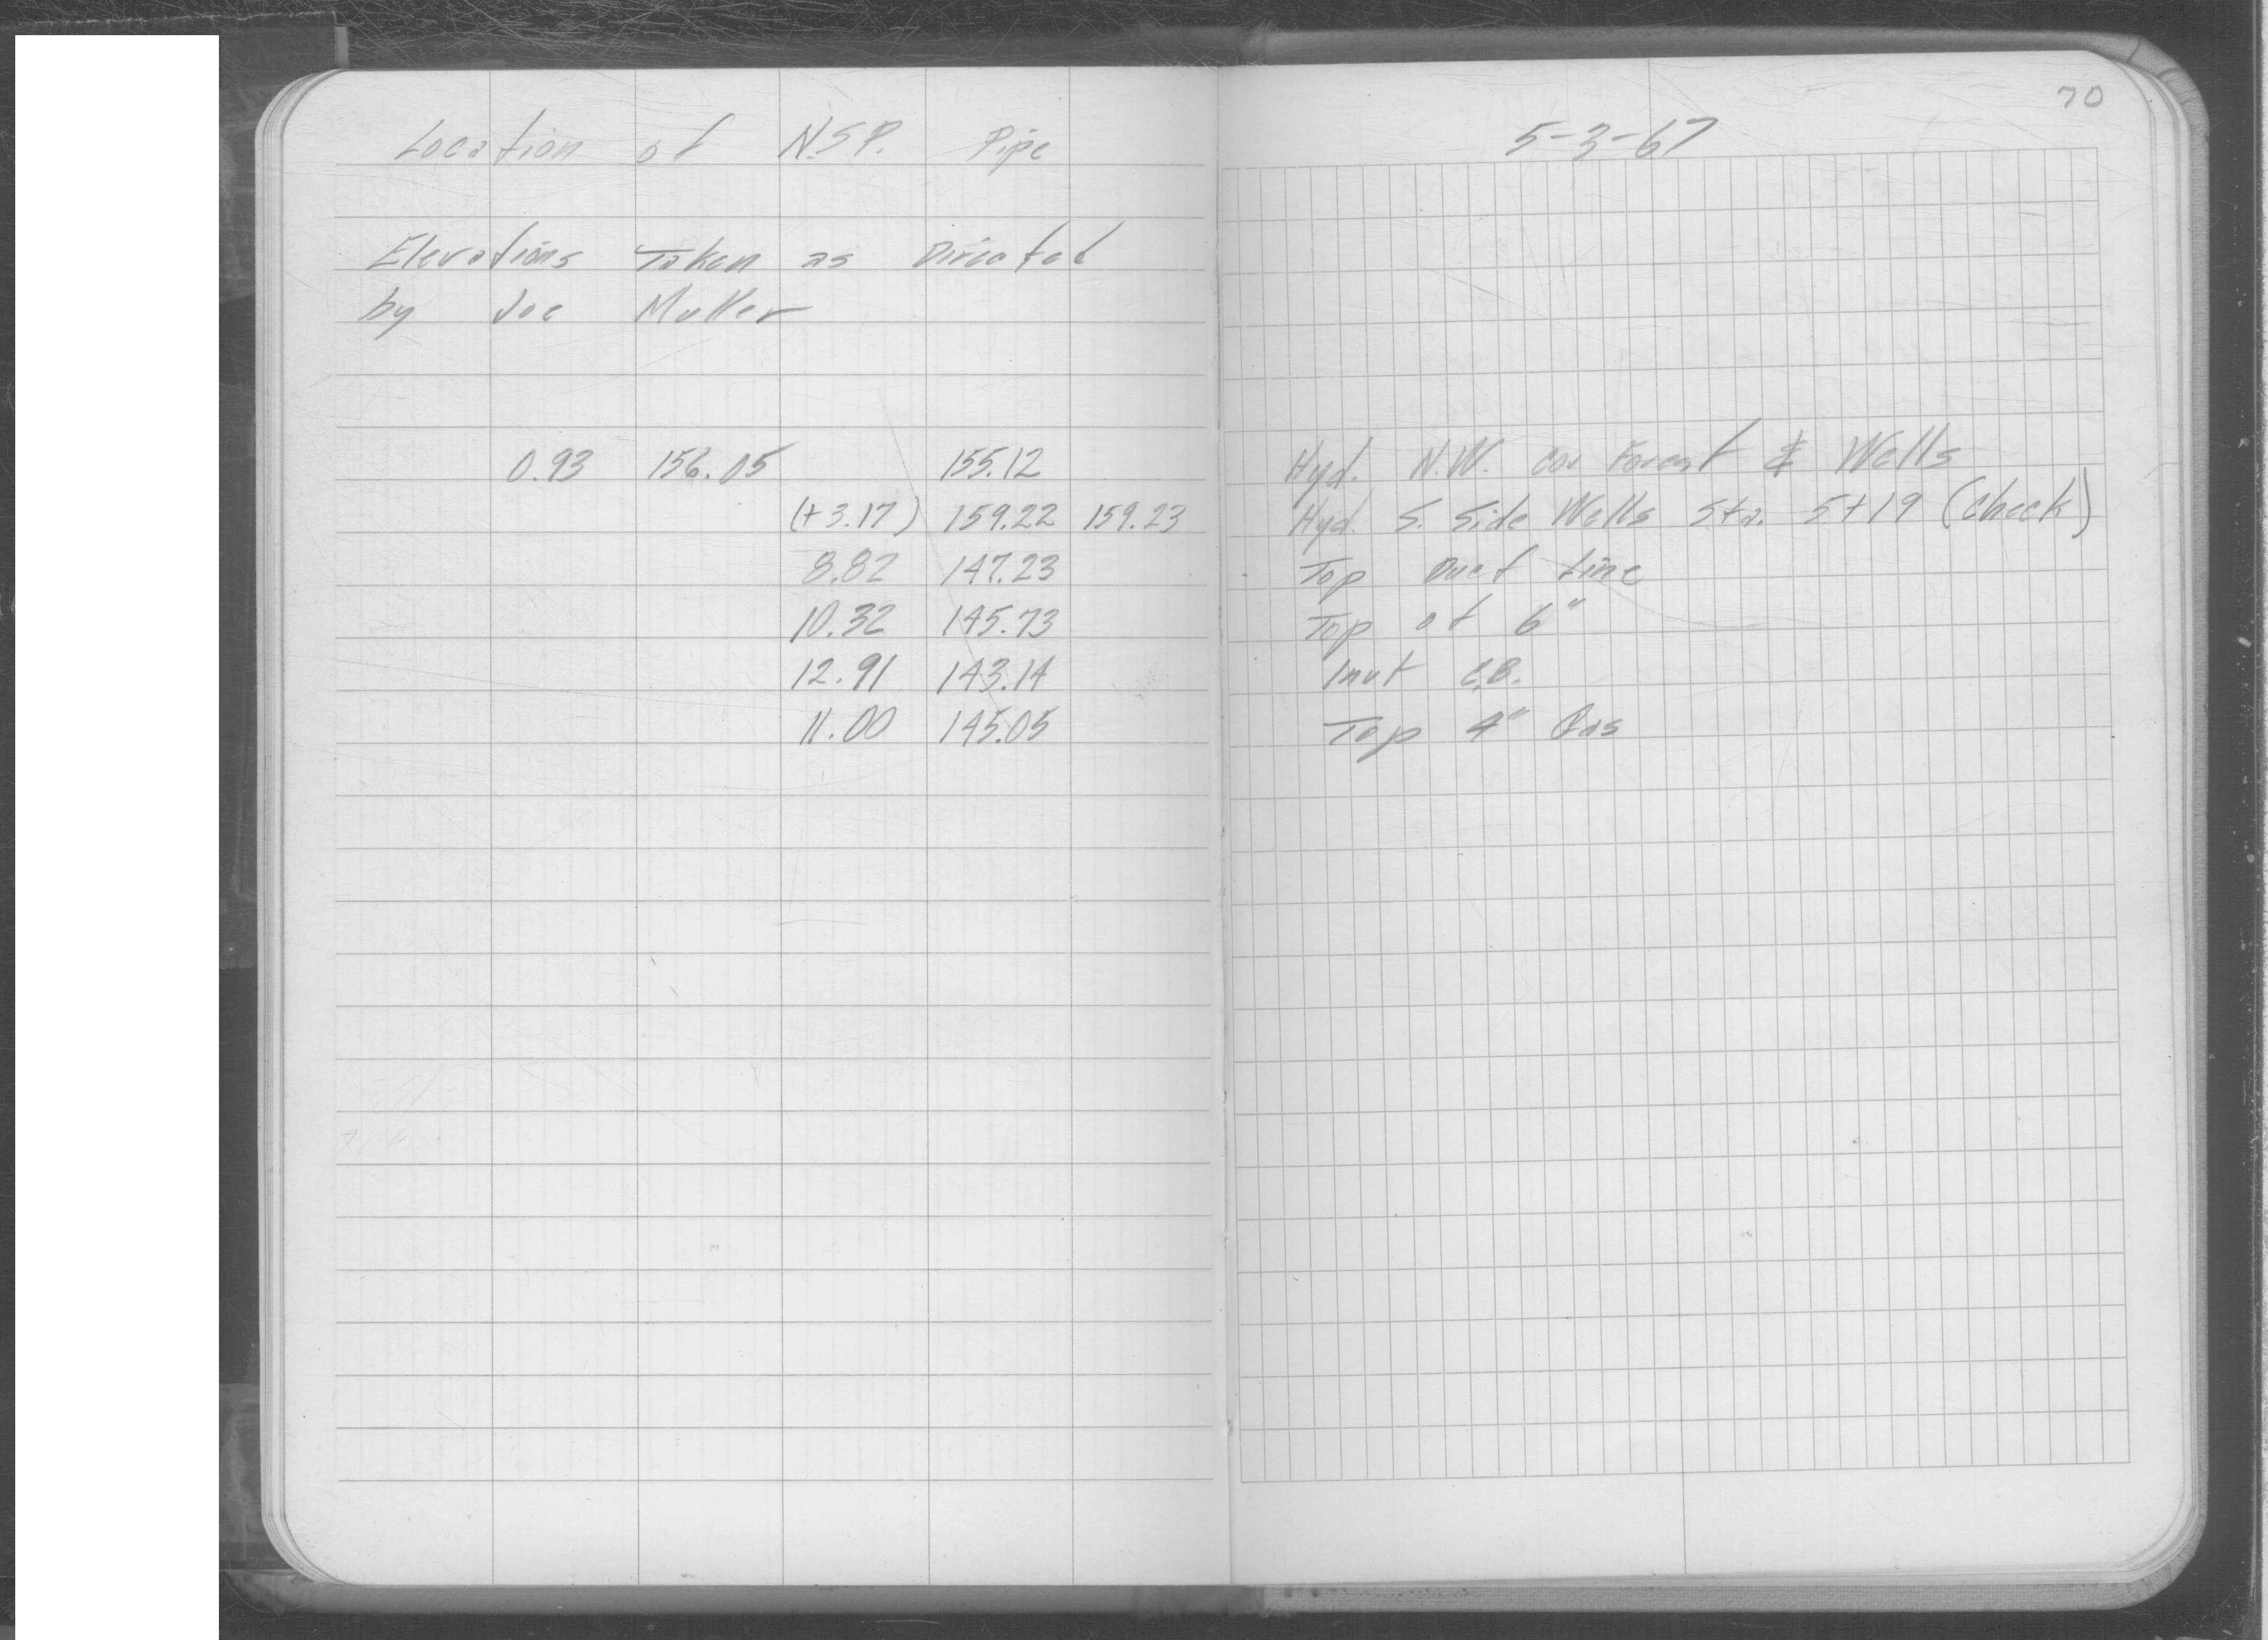 70
Location of N.S.P. Pipe 5-3-67
Elevations Taken as Directed
by Joe Muller
0.93 156.05 155.12 Hyd. N.W. cor Forest & Wells
(+3.17) 159.22 159.23 Hyd S. Side Wells Sta. 5+19 (Check)
8.82 147.23 Top Duct Line
10.32 145.73 Top of 6"
12.91 143.14 Invt C.B.
11.00 145.05 Top 4" Gas